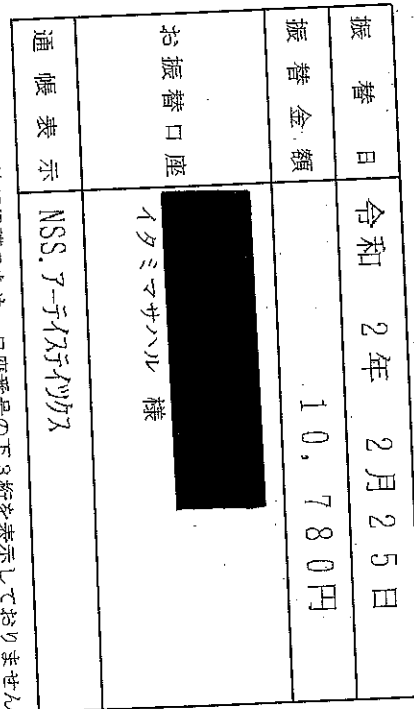 振替日 令和 2年 2月25日
振替金額 10,780円
お振替口座
イタミマサハル 様
通帳表示 NSS.アーテイステイツクス
口座番号の下3桁を表示しておりません